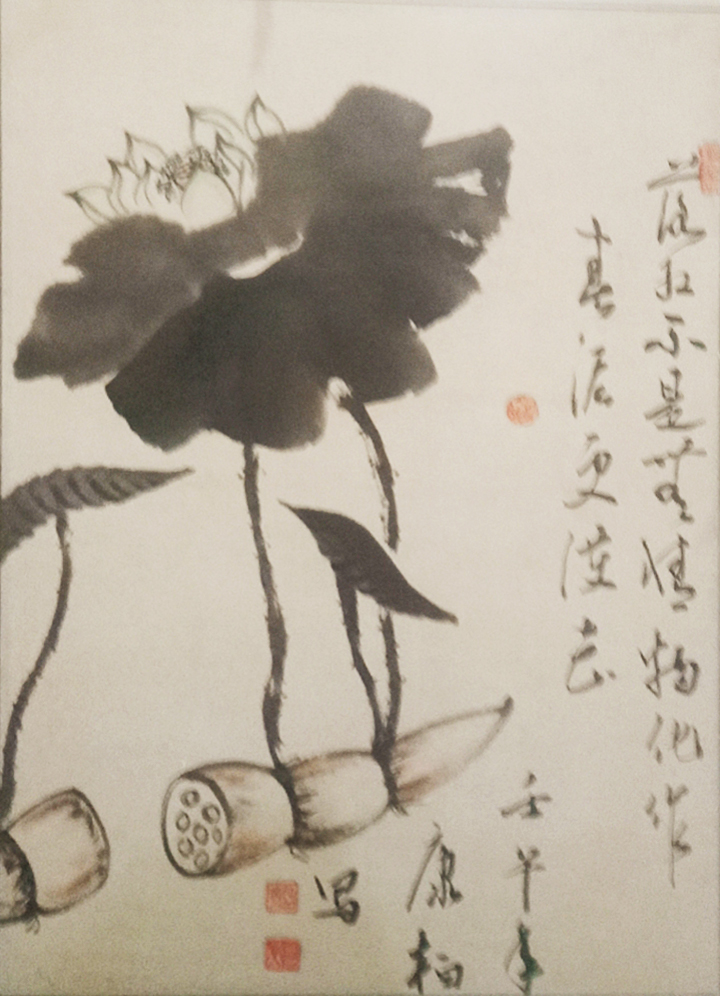 落红不是無情物化作
春泥更護花
壬午年
康柏
写